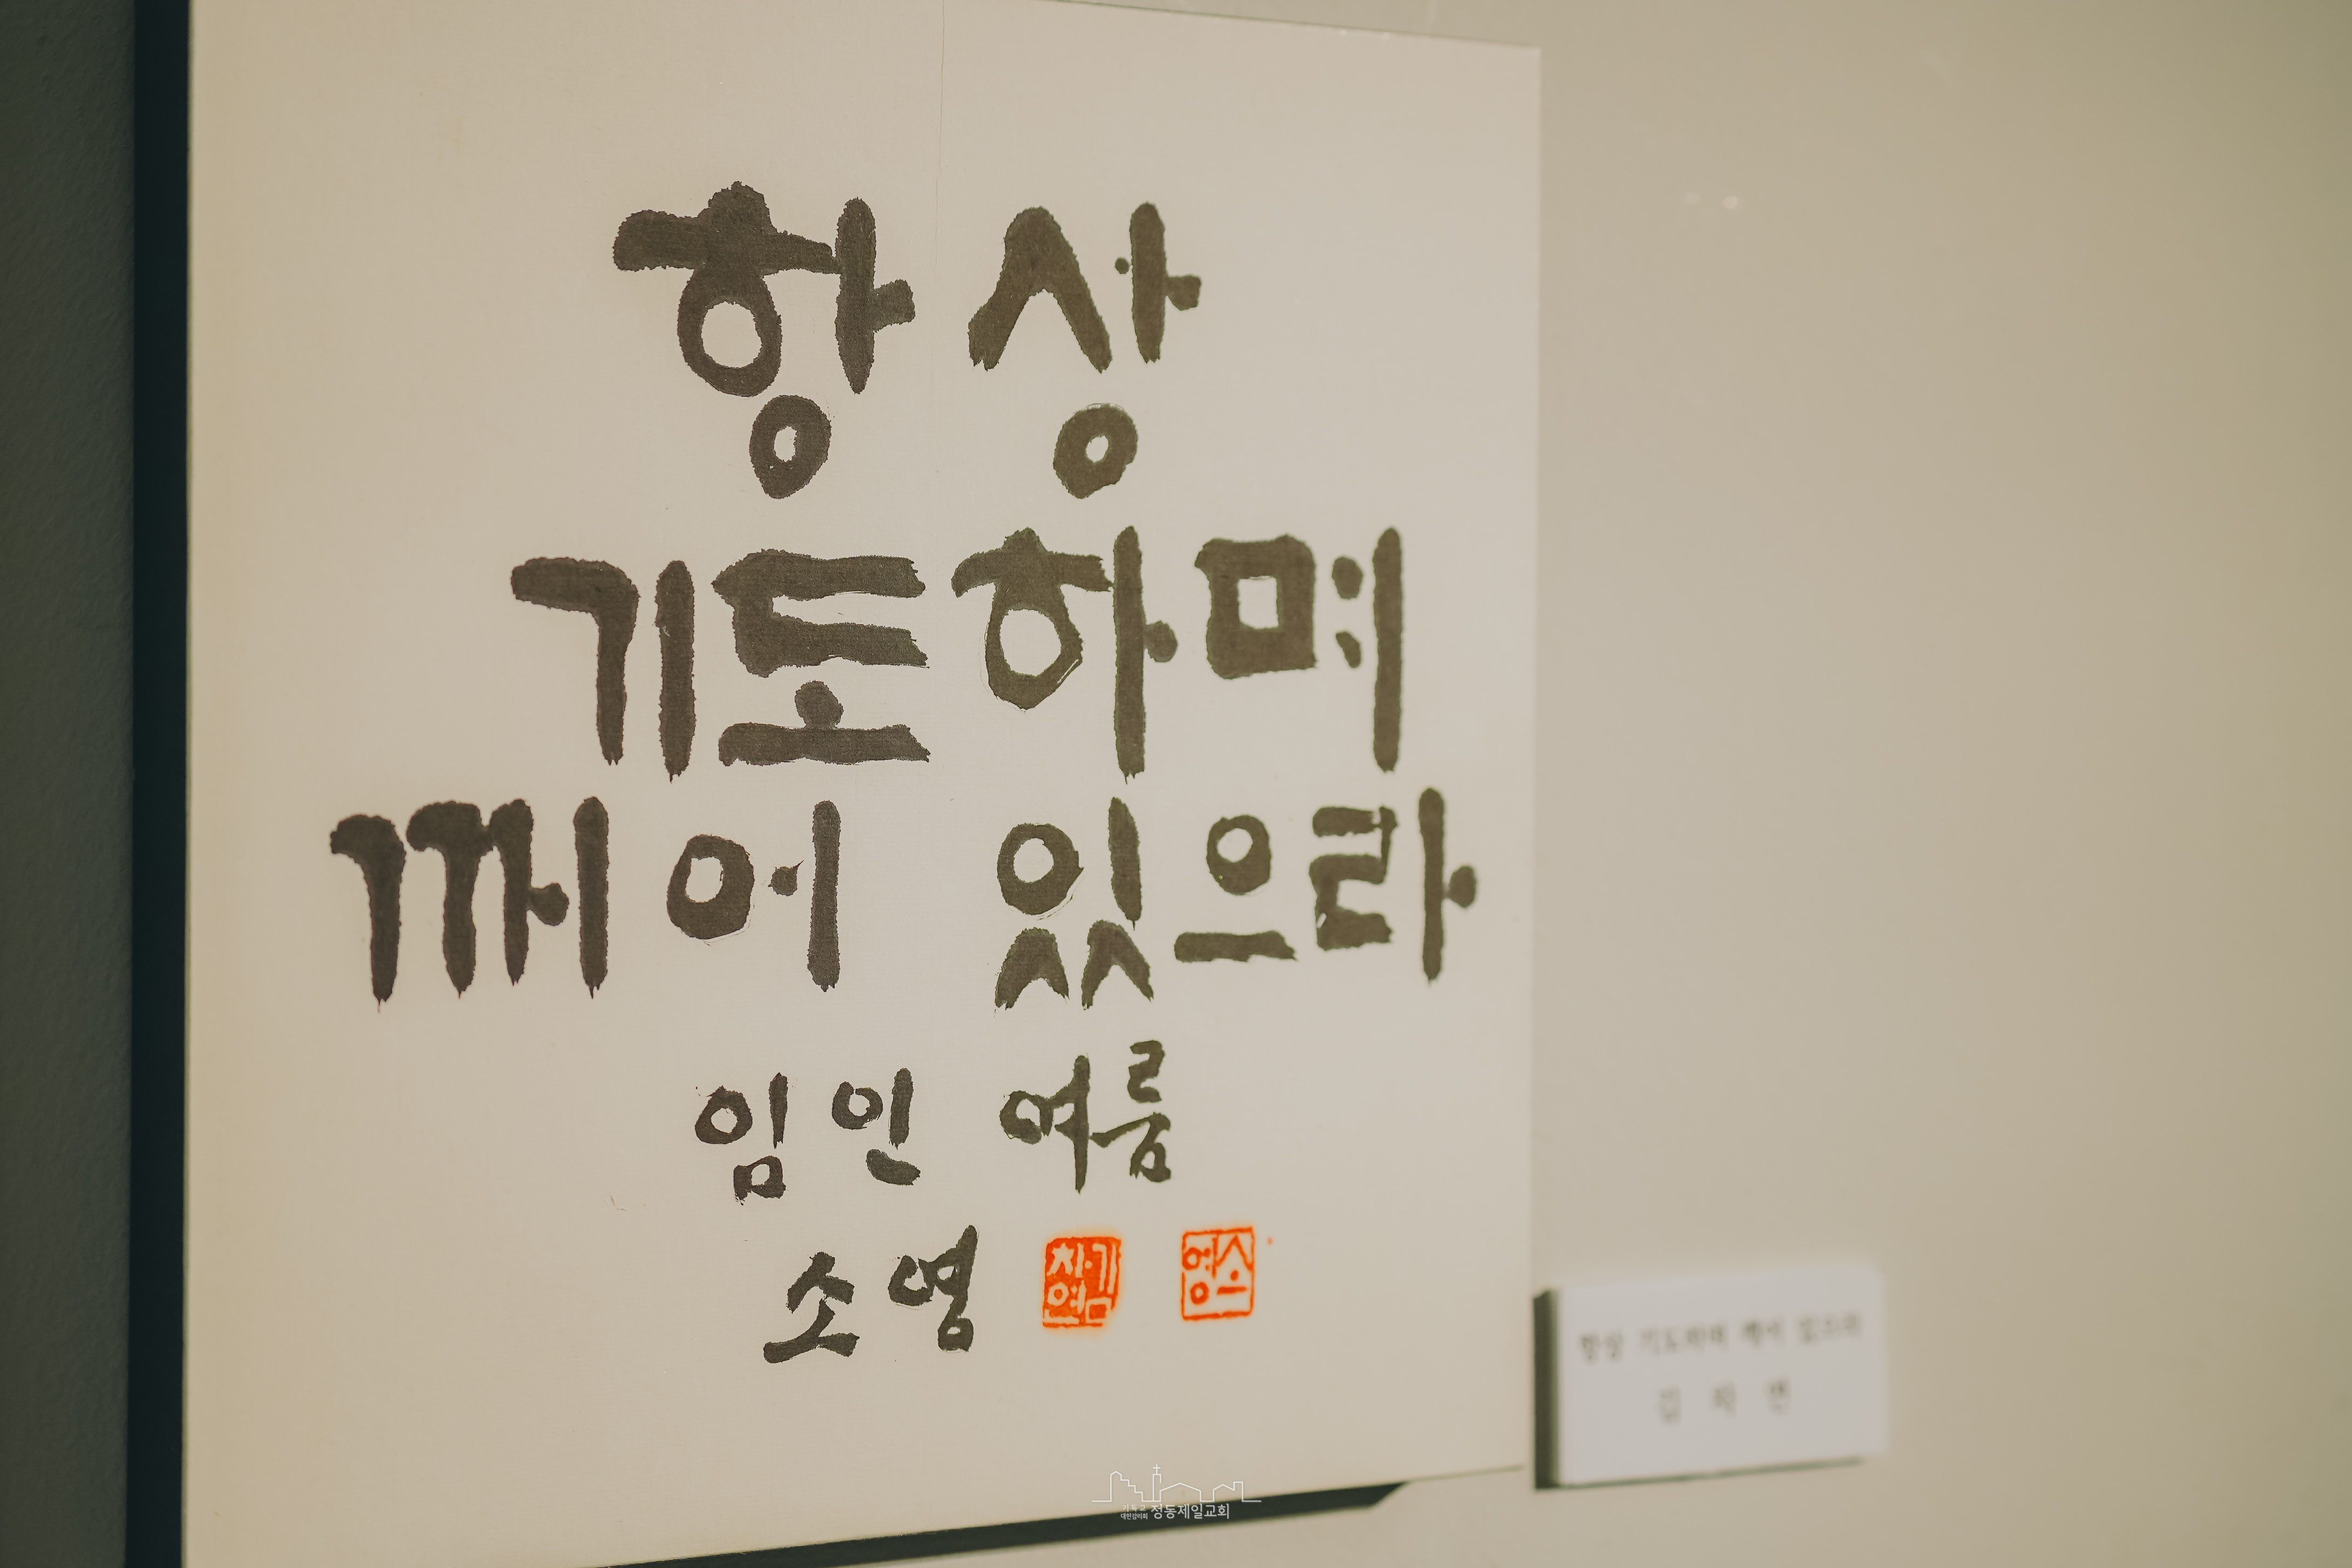 항상
기도하며
깨어 있으라
임인 여름
소영
김차연
소영
항상 기도하며 깨어 있으라
김 차 연
기독교
대한감리회 정동제일교회